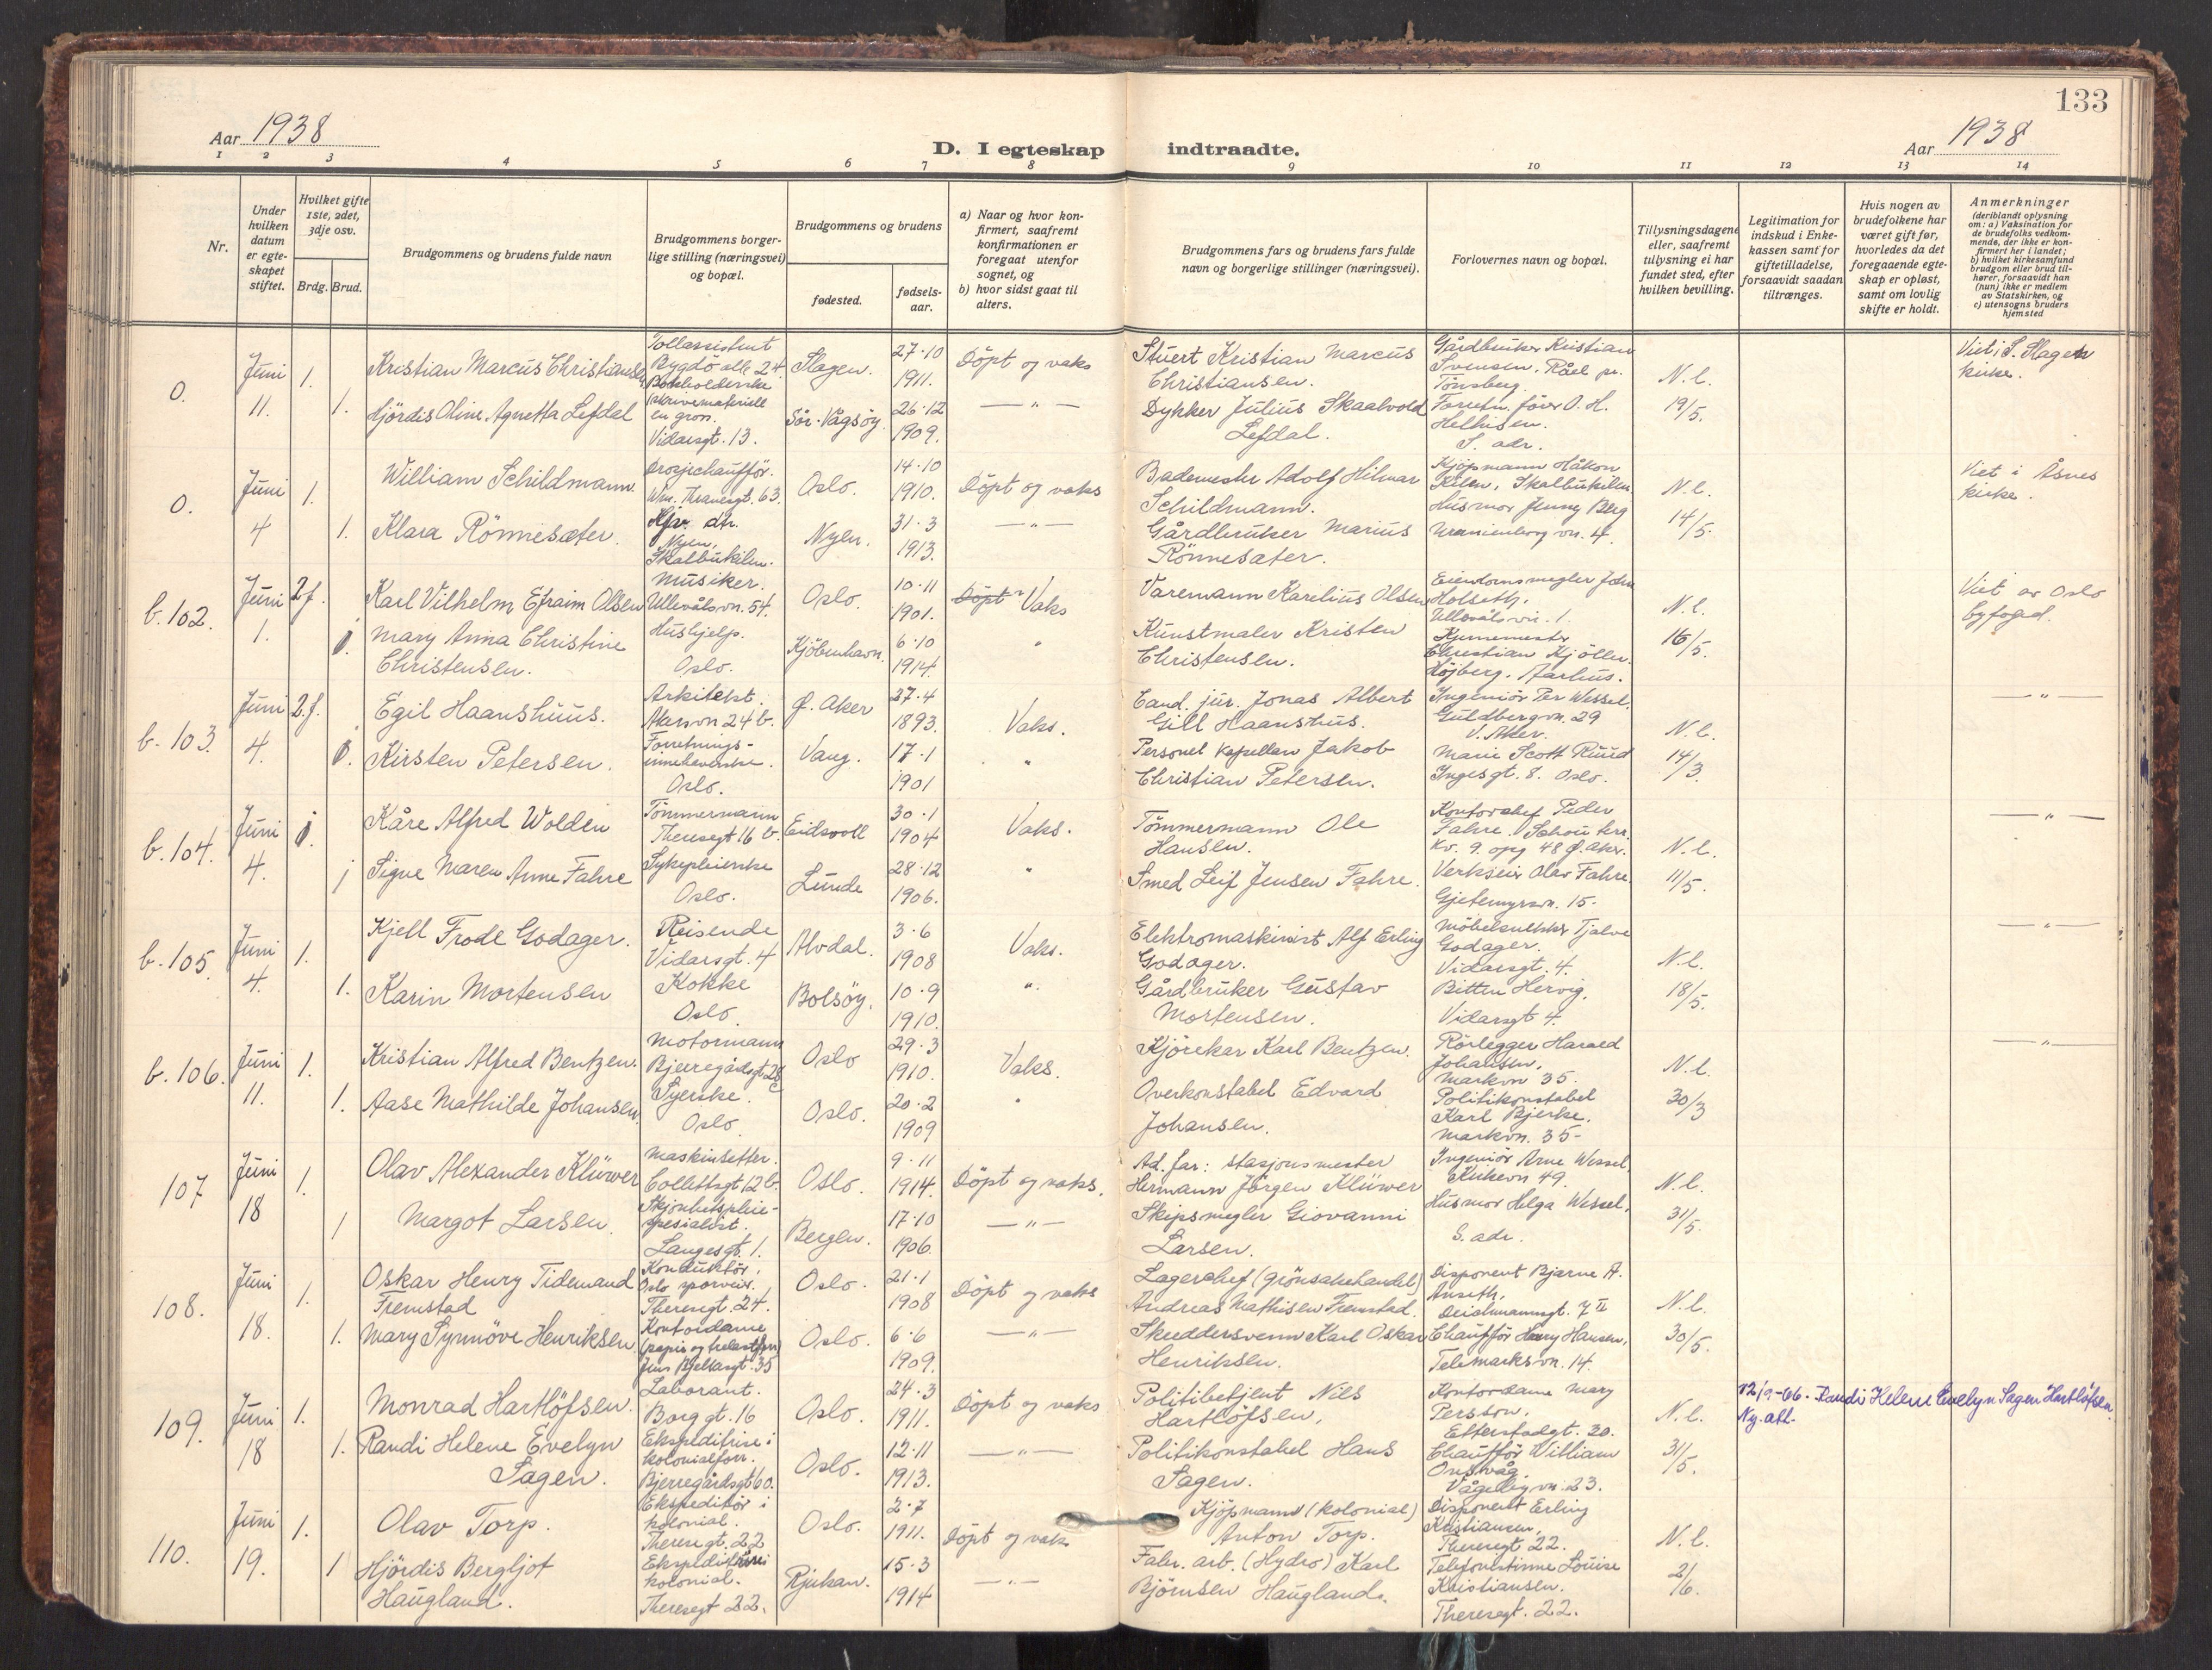 133
Aar 1938
D. I egteskap indtraadte.
Aar 1938
1 2 3 4 5 6 7 8 9 10 11 12 13 14
Nr.
Under hvilken datum er egteskapet stiftet.
Hvilket gifte 1ste, 2det, 3dje osv.
Brdg. Brud.
Brudgommens og brudens fulde navn
Brudgommens borgerlige stilling (næringsvei) og bopæl.
Brudgommens og brudens
fødested.
fødselsaar.
a) Naar og hvor konfirmert, saafremt konfirmationen er foregaat utenfor sognet, og
b) hvor sidst gaat til alters.
Brudgommens fars og brudens fars fulde navn og borgerlige stillinger (næringsvei).
Forlovernes navn og bopæl.
Tillysningsdagene eller, saafremt tillysning ei har fundet sted, efter hvilken bevilling.
Legitimation for indskud i Enkekassen samt for giftetilladelse, forsaavidt saadan tiltrænges.
Hvis nogen av brudefolkene har været gift før, hvorledes da det foregaaende egteskap er opløst, samt om lovlig skifte er holdt.
Anmerkninger (deriblandt oplysning om: a) Vaksination for de brudefolks vedkommende, der ikke er konfirmert her i landet; b) hvilket kirkesamfund brudgom eller brud tilhører, forsaavidt han (hun) ikke er medlem av Statskirken, og c) utensogns bruders hjemsted
0. Juni 11. 1. Kristian Marcus Christiansen
Tollassistent Bygdö alle 24. Slagen. 27.10 1911. Döpt og vaks
Stuert Kristian Marcus Christiansen.
Gårdbruker Kristian Svensen, Råel pr. Tønsberg.
N.l. 19/5.
Viet i S. Slagen kirke.
1. Hjördis Oline Agnetta Lefdal
Bokholderske skrivemateriell en gros. Vidarsgt. 13. Sör-Vågsöy. 26.12 1909. — " —
Dykker Julius Skaalvold Lefdal.
Forretn. förer O. H. Helhisen. S. adr.
0. Juni 4 1. William Schildmann.
Drosjechafför. Wm. Thranesgt. 63. Oslo. 14.10 1910. Döpt og vaks
Bademester Adolf Hilmar Schildmann.
Kjøpmann Håkon Kilen, Skalbukilen
N.l. 14/5.
Viet i Åsnes kirke.
1. Klara Rönnesæter.
Hjv. dtr. Nyen, Skalbukilen. Nyen. 31.3 1913. — " —
Gårdbruker Marius Rönnesæter.
Husmor Jenny Berg Uranienborg vn. 4.
b. 102. Juni 1. 2f. Karl Vilhelm Efraim Olsen
Musiker. Ullevålsvn. 54. Oslo. 10.11 1901. Döpt Vaks
Varemann Karelius Olsen
Eiendomsmegler John Holseth. Ullevålsvn. 1.
N.l. 16/5.
Viet av Oslo byfogd.
Mary Anna Christine Christensen.
Hushjelp. Oslo. Kjöbenhavn. 6.10 1914. "
Kunstmaler Kristen Christensen.
Christian Kjöller. Höjberg. Aarhus.
b. 103. Juni 4. 2.f. Egil Haanshuus.
Arkitekt. Akersvn 24 b. Ø. Aker 27.4 1893. Vaks.
Cand. jur. Jonas Albert Gill Haanshus.
Ingeniör Per Wessel. Guldbergvn. 29 V. Aker.
N.l. 14/3.
— " —
Kirsten Petersen.
Forretnings-innehaverske. Oslo. Vang. 17.1 1901 "
Personel Kapellan Jakob Christian Petersen.
Marie Scott Ruud Ingesgt. 8. Oslo.
b. 104. Juni 4. Kåre Alfred Wolden
Tömmermann Theresegt 16 b. Eidsvoll 30.1 1904 Vaks.
Tömmermann Ole Hansen.
Kontorchef Peder Fahre. Schou terr. Kv. 9. opg 48 Ø. Aker.
N.l. 11/5.
— " —
Signe Maren Anne Fahre
Sykepleierske Oslo. Lunde 28.12 1906. "
Smed Leif Jensen Fahre.
Verkseier Olav Fahre. Gjetemyrsvn. 15.
b. 105. Juni 4. 1. Kjell Frode Godager.
Reisende Vidarsgt. 4 Alvdal. 3.6 1908 Vaks.
Elektromaskinist Alf Erling Godager.
Tjalve Godager. Vidarsgt. 4.
N.l. 18/5.
— " —
1. Karin Mortensen
Kokke Oslo. Bolsöy. 10.9 1910. "
Gårdbruker Gustav Mortensen.
Bitten Hervig. Vidarsgt 4.
b. 106. Juni 11. 1. Kristian Alfred Bentzen.
Motormann Bjerregårdsgt 28 c Oslo 29.3 1910. Vaks.
Kjörekar Karl Bentzen.
Rörlegger Harald Johansen, Markvn 35.
N.l. 30/3
— " —
1. Aase Mathilde Johansen.
Syerske. Oslo. Oslo. 20.2 1909 "
Overkonstabel Edvard Johansen.
Politikonstabel Karl Bjerke. Markvn. 35-
107 Juni 18 1. Olav Alexander Klüwer
Maskinsetter. Collettsgt 12 b. Oslo. 9.11 1914. Döpt og vaks.
Ad. far: Stasjonsmester Hermann Jörgen Klüwer
Ingeniör Arne Wessel. Kirkevn 49.
N.l. 31/5.
1 Margot Larsen.
Skjönhetspleie-spesialist. Langesgt. 1. Bergen. 17.10 1906. — " —
Skipsmegler Giovanni Larsen.
Husmor Helga Wessel. S. adr.
108. Juni 18. 1. Oskar Henry Tidemand Fremstad
Konduktör, Oslo sporveier, Theresegt. 24. Oslo. 21.1 1908 Döpt og vaks
Lagerchef (grönsakhandel) Andreas Mathisen Fremstad.
Disponent Bjarne A. Anseth, Deichmannsgt. 7 II
N.l. 30/5.
1. Mary Synnöve Henriksen.
Kontordame Jens Bjelkesgt. 35 Oslo. 6.6 1909. — " —
Skreddersvenn Karl Oskar Henriksen.
Chafför Harry Hansen, Telemarksvn. 14.
109. Juni 18 1. Monrad Hartlöfsen.
Laborant. Borggt. 16 Oslo. 24.3 1911. Döpt og vaks
Politibetjent Nils Hartlöfsen,
Kontordame Mary Persson. Etterstadgt. 20.
N.l. 31/5.
12/9-66. Randi Helene Evelyn Sagen Hartlöfsen.
Ny att.
1. Randi Helene Evelyn Sagen.
Ekspeditrise i kolonialforr. Bjerregårdsgt 60. Oslo. 12.11 1913. — " —
Politikonstabel Hans Sagen.
Chafför William Onsvåg. Vågebyvn. 23.
110. Juni 19. 1. Olav Torp.
Ekspeditör i kolonial. Theresegt. 22 Oslo. 2.7 1911. Döpt og vaks
Kjöpmann (kolonial) Anton Torp.
Disponent Erling Kristiansen, Theresegt 22.
N.l. 2/6.
1 Hjördis Bergljot Haugland.
Ekspeditrise i kolonial. Theresegt 22. Rjukan. 15.3 1914 — " —
Fabr. arb. (Hydro) Karl Björnsen Haugland.
Telefonistinne Louise Kristiansen. Theresegt. 22.